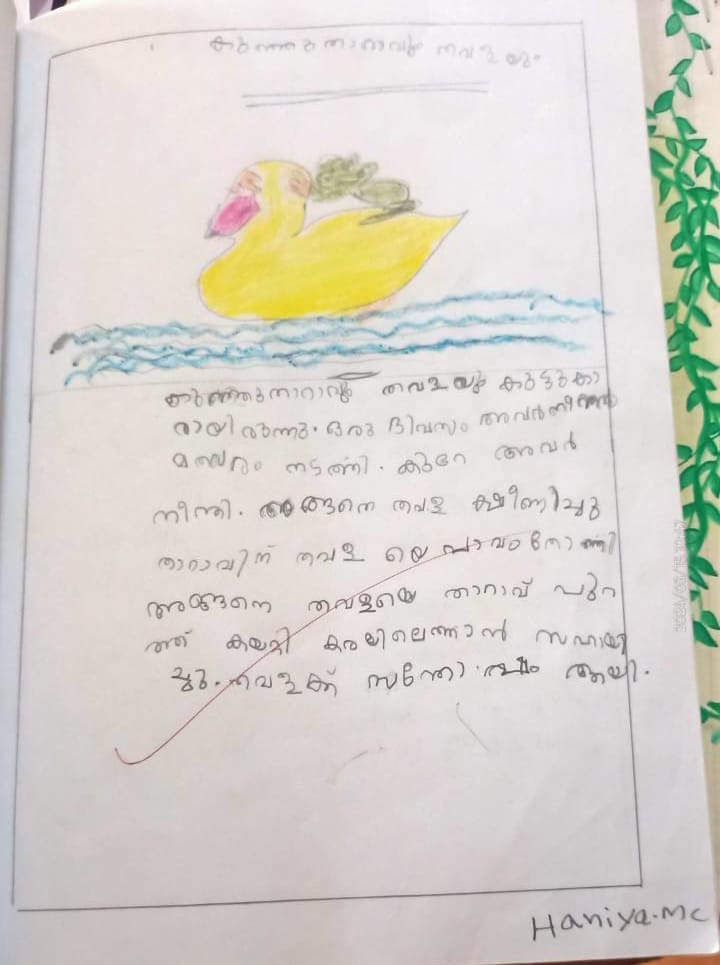 കുഞ്ഞുതാറാവും തവളയും
കുഞ്ഞുതാറാവും തവളയും കൂട്ടുകാ
രായിരുന്നു. ഒരു ദിവസം അവർ നീന്തൽ
മത്സരം നടത്തി. കുറേ അവർ
നീന്തി. അങ്ങനെ തവള ക്ഷീണിച്ചു
താറാവിന് തവള യെ പാവം തോന്നി
അങ്ങനെ തവളയെ താറാവ് പുറ
ത്ത് കയറ്റി കരയിലെത്താൻ സഹായി
ച്ചു. തവളക്ക് സന്തോഷം ആയി.
Haniya.Mc